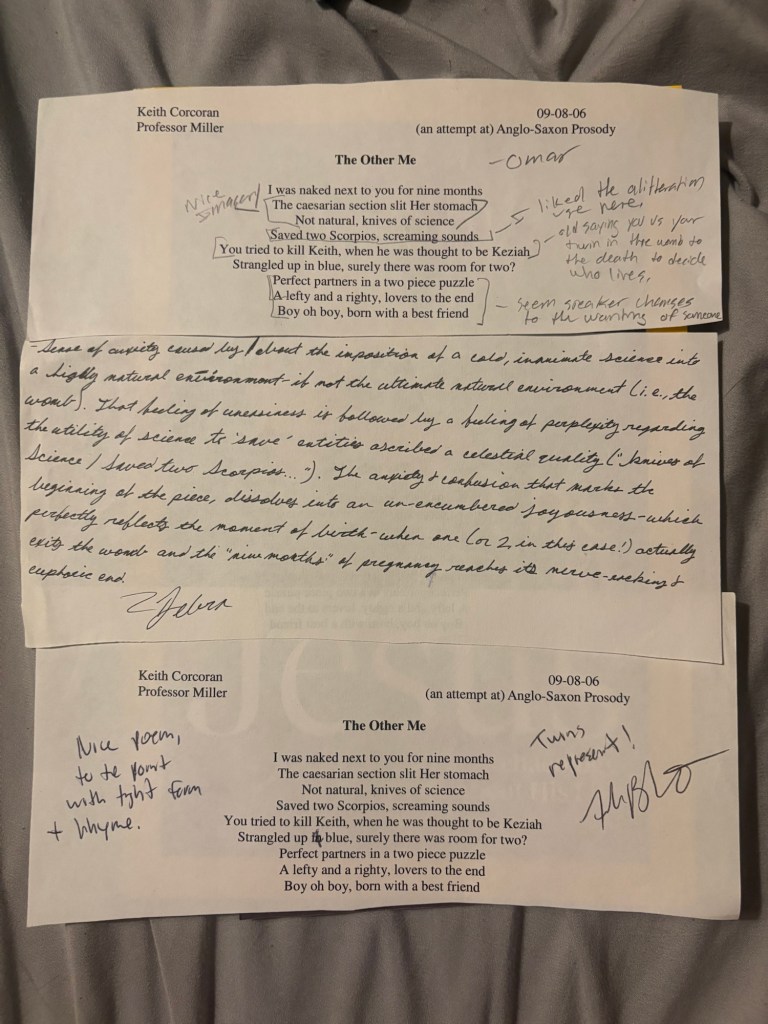 Keith Corcoran
Professor Miller
09-08-06
(an attempt at) Anglo-Saxon Prosody
The Other Me
-Omar
Nice
I was naked next to you for nine months
The caesarian section slit Her stomach
Not natural, knives of science
Saved two Scorpios, screaming sounds
You tried to kill Keith, when he was thought to be Keziah
Strangled up in blue, surely there was room for two?
Perfect partners in a two piece puzzle
A lefty and a righty, lovers to the end
Boy oh boy, born with a best friend
liked the alitteration
use here.
old saying you vs your
twin in the womb to
the death to decide
who lives.
- seem speaker changes
to the wanting of someone
- Sense of anxiety caused by/about the imposition of a cold, inanimate science into
a highly natural environment - if not the ultimate natural environment (i.e., the
womb). That feeling of uneasiness is followed by a feeling of perplexity regarding
the utility of science to 'save' entities ascribed a celestial quality ("knives of
Science / Saved two Scorpios..."). The anxiety & confusion that marks the
beginning of the piece, dissolves into an un-encumbered joyousness - which
perfectly reflects the moment of birth - when one (or 2, in this case!) actually
exits the womb and the "nine months" of pregnancy reaches its nerve-racking &
euphoric end.
Debra
Keith Corcoran
Professor Miller
09-08-06
(an attempt at) Anglo-Saxon Prosody
The Other Me
Nice poem,
to te point
with tight form
+ Rhyme.
Twins
represent!
I was naked next to you for nine months
The caesarian section slit Her stomach
Not natural, knives of science
Saved two Scorpios, screaming sounds
You tried to kill Keith, when he was thought to be Keziah
Strangled up blue, surely there was room for two?
Perfect partners in a two piece puzzle
A lefty and a righty, lovers to the end
Boy oh boy, born with a best friend